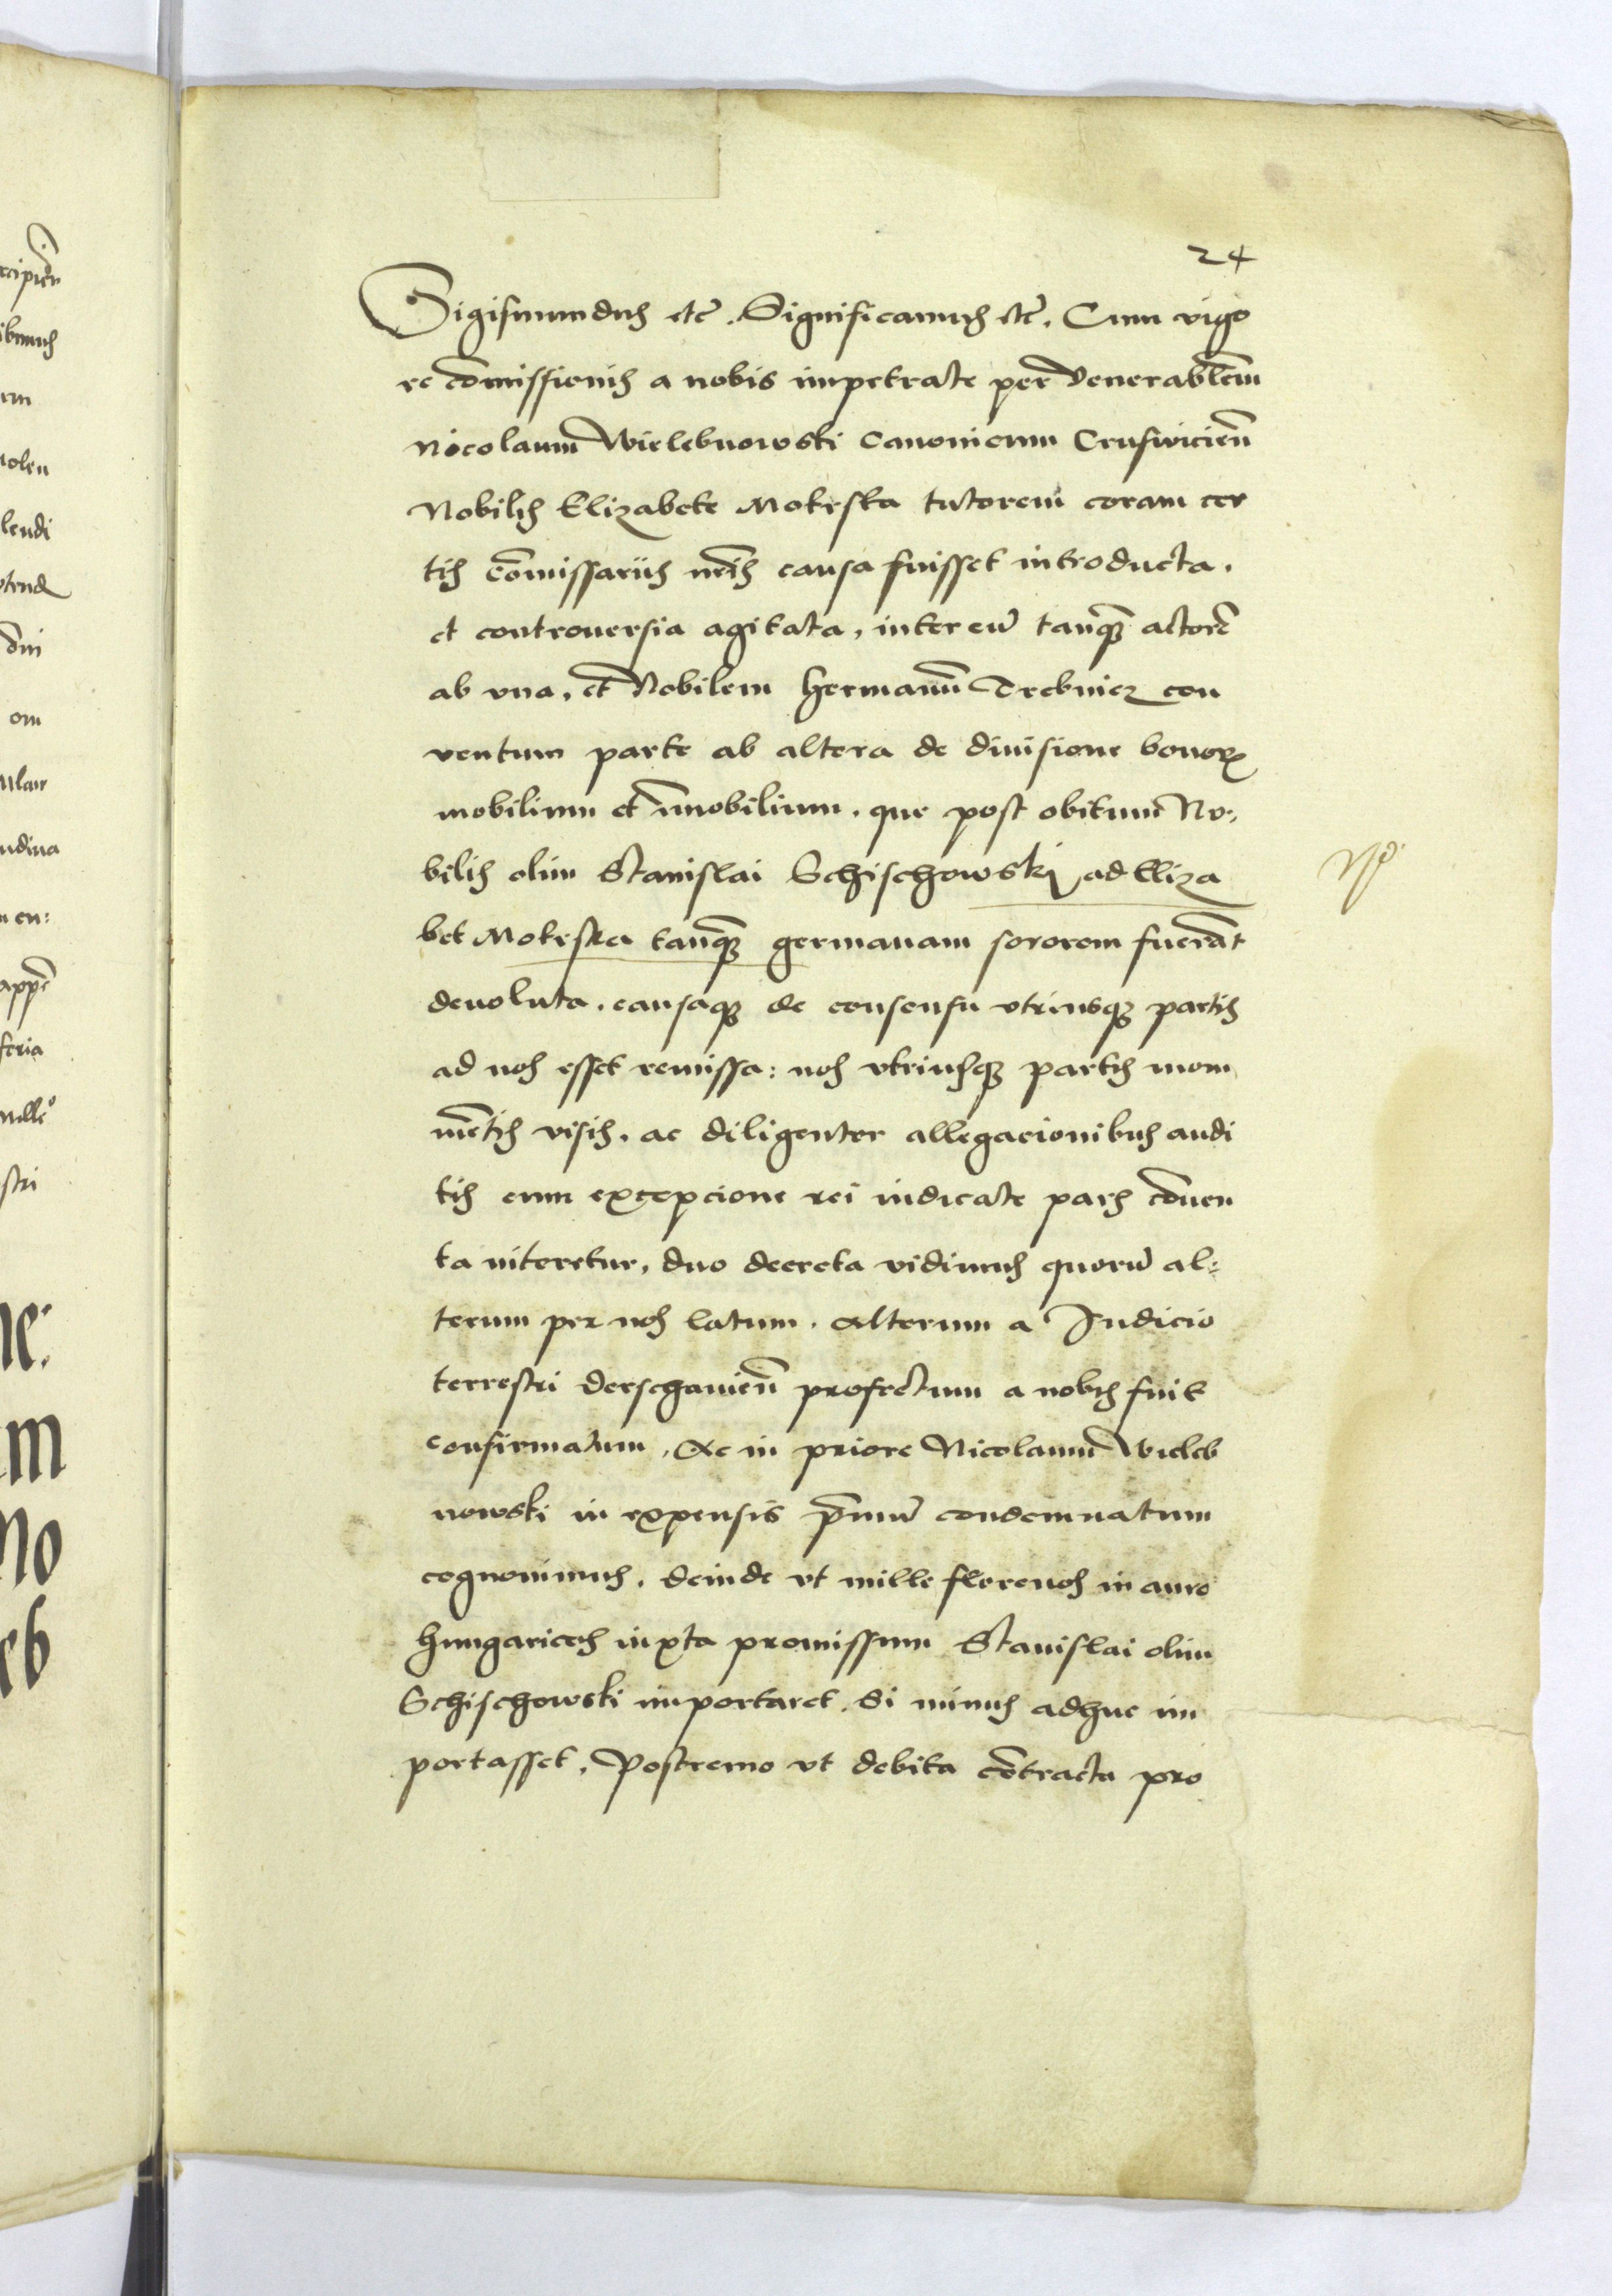 24
Sigismundus etc̃. Significamus etc̃. Cum vigo
re com̃issionis a nobis impetrate per Venerabilem
Nicolaum Wielebnowski Canonicum Crusvicien̄
Nobilis Elizabete Mokrska tutorem coram cer
tis com̃issariis nr̃is causa fuisset introducta.
et controuersia agitata, inter eu̅ tanqȝ actore̅
ab vna, et Nobilem Hermanu̅ Trebnicz con
ventum parte ab altera de diuisione bonorꝝ
mobilium et im̅obilium, que post obitum No-
bilis olim Stanislai Schischowski ad Eliza
bet Mokrska tanqȝ germanam sororem fuera̅t
deuoluta, causaqȝ de consensu vtriusqȝ partis
ad nos esset remissa: nos vtriusqȝ partis mom
me̅tis visis, ac diligenter allegacionibus audi
tis cum excepcione rei iudicate pars co̅uen
ta niteretur, duo decreta vidimus quoru̅ al-
terum per nos latum. alterum a Iudicio
terrestri derschauien̄ profectum a nobis fuit
confirmatum, Ac in priore Nicolaum Wieleb
nowski in expensis p̅mum condemnatum
cognouimus, deinde vt mille florenos in auro
hungaricos iuxta promissum Stanislai olim
Schischowski importaret. Si minus adhuc im
portasset, Postremo vt debita co̅tracta pro
recipien̄
om
feria
stri